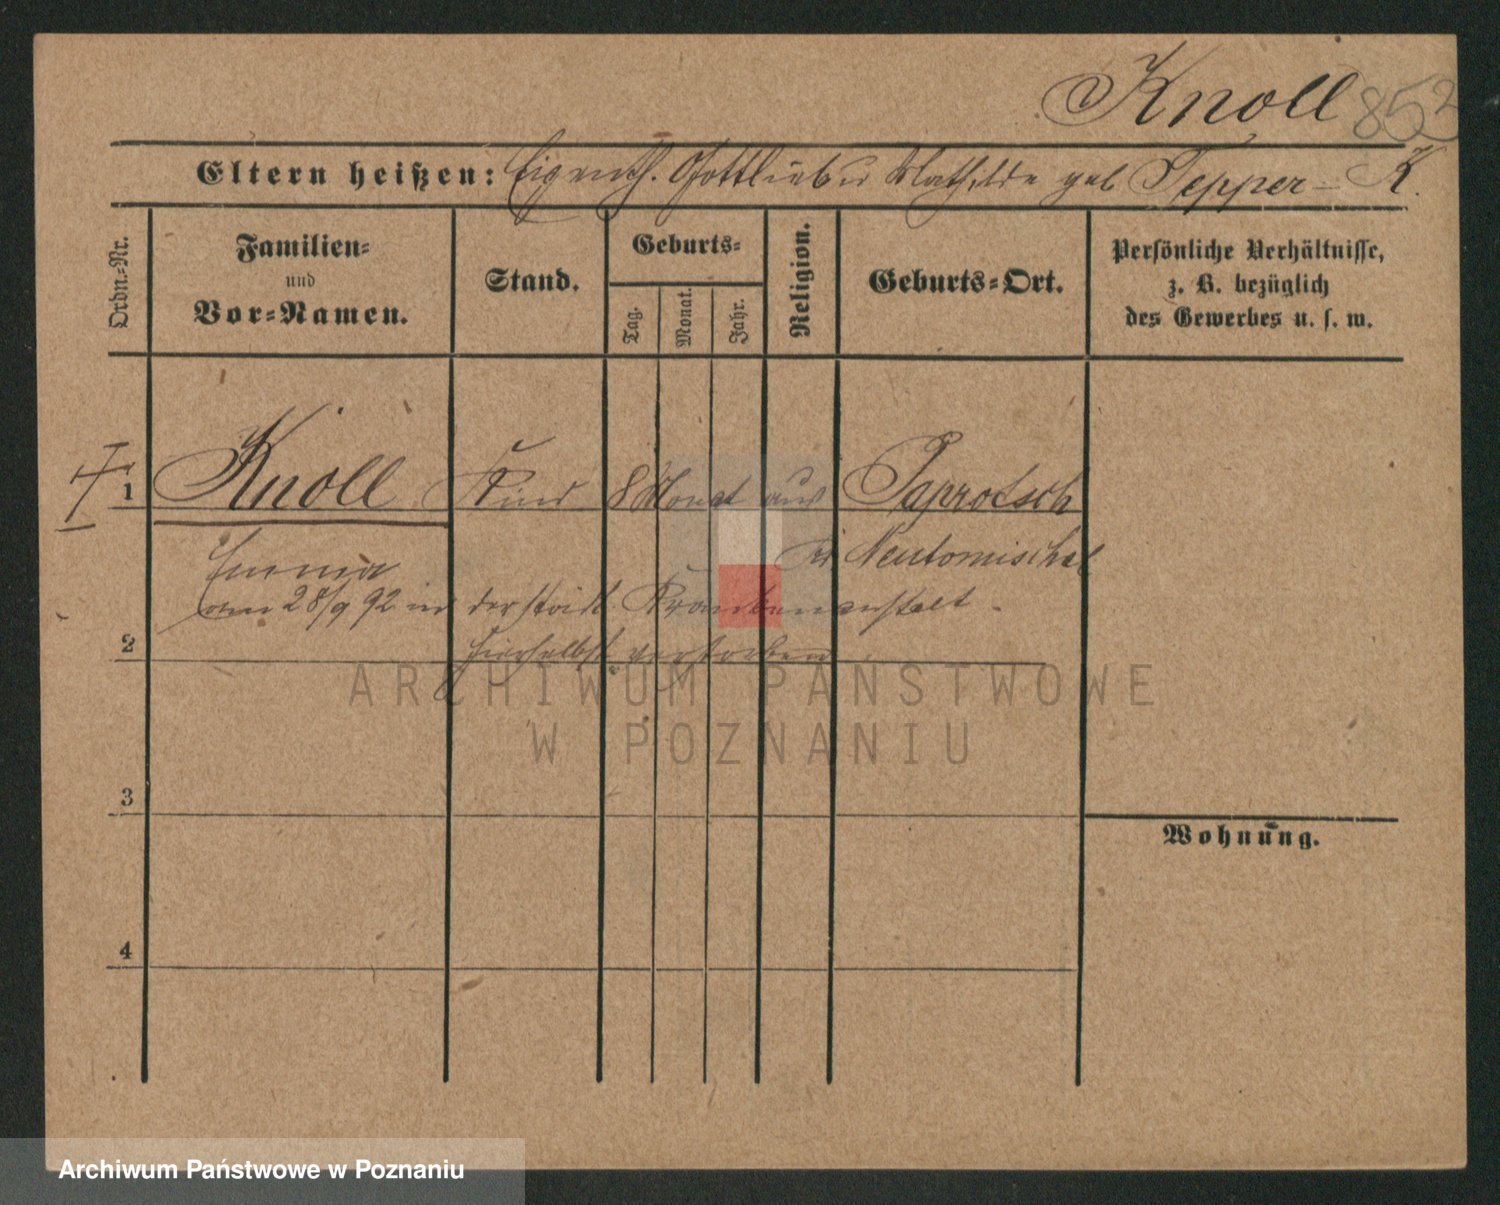 Knoll 852
Eltern heißen: Eigenth. Gottlieb u Mathilde geb Tepper - K.
Ordn.=Nr.
Familien=
und
Vor=Namen.
Stand.
Geburts=
Tag.
Monat.
Jahr.
Religion.
Geburts=Ort.
Persönliche Verhältnisse,
z. B. bezüglich
des Gewerbes u. s. w.
1 Knoll Kind 8 Monat aus Paprotsch
Emma Neutomischel
am 28/9 92 in der städt. Krankenanstalt
2 hierselbst verstorben
ARCHIWUM PAŃSTWOWE
W POZNANIU
3
Wohnung.
4
Archiwum Państwowe w Poznaniu